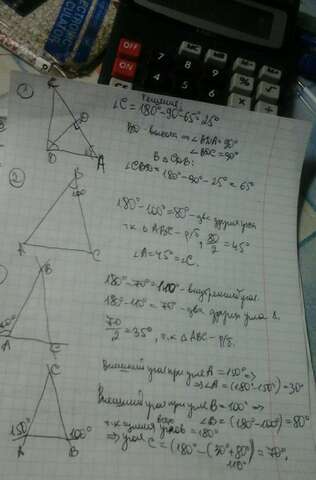 OFF
ON
①
Решение:
∠C = 180°-90°-65° 25°
BD - высота ⇒ ∠BDA = 90°
∠BDC = 90°
В △CDB:
∠CBD = 180°-90°-25° = 65°
C
D
B
A
②
B
100°
A
C
180°-100° = 80° - два других угла
т.к △ABC - р/б, 80/2 = 45°
∠A = 45° = ∠C.
B
A
C
180°-70° = 110° - внутренний угол.
180°-110° = 70° - два других угла
70/2 = 35°, т.к △ABC - р/б.
C
150°
100°
A
B
Внешний угол при угле A = 150° ⇒
⇒ ∠A = (180°-150°) = 30°
Внешний угол при угле B = 100° ⇒
∠B = (180°-100°) = 80°
т.к сумма всех углов = 180°
⇒ угол C = (180° - (30°+80°) = 70°,
110°